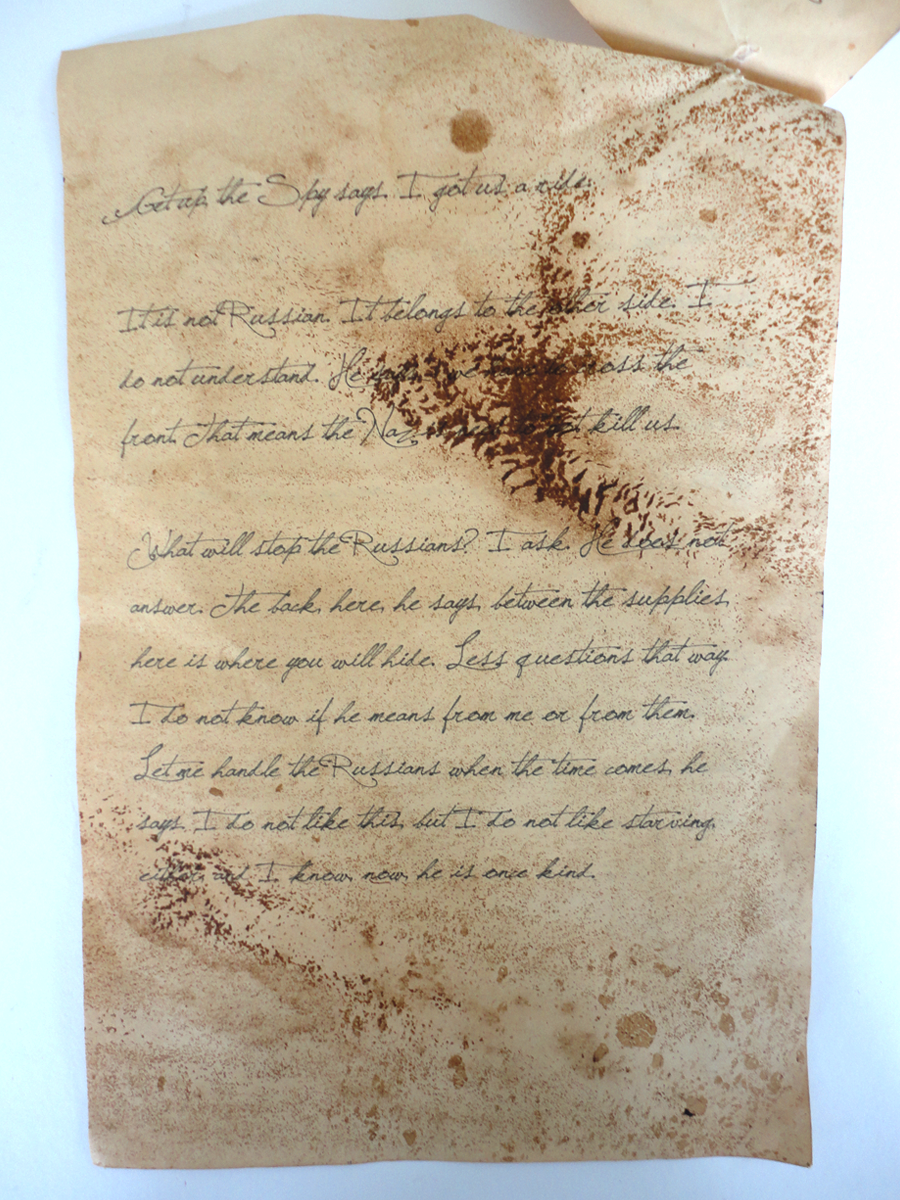 Get up, the Spy says. I got us a ride.
It is not Russian. It belongs to the other side. I
do not understand. He we cross the
front. That means the not kill us.
What will stop the Russians? I ask. He does not
answer. The back, here, he says, between the supplies,
here is where you will hide. Less questions that way.
I do not know if he means from me or from them.
Let me handle the Russians when the time comes, he
says. I do not like this, but I do not like starving,
either and I know now, he is once kind.